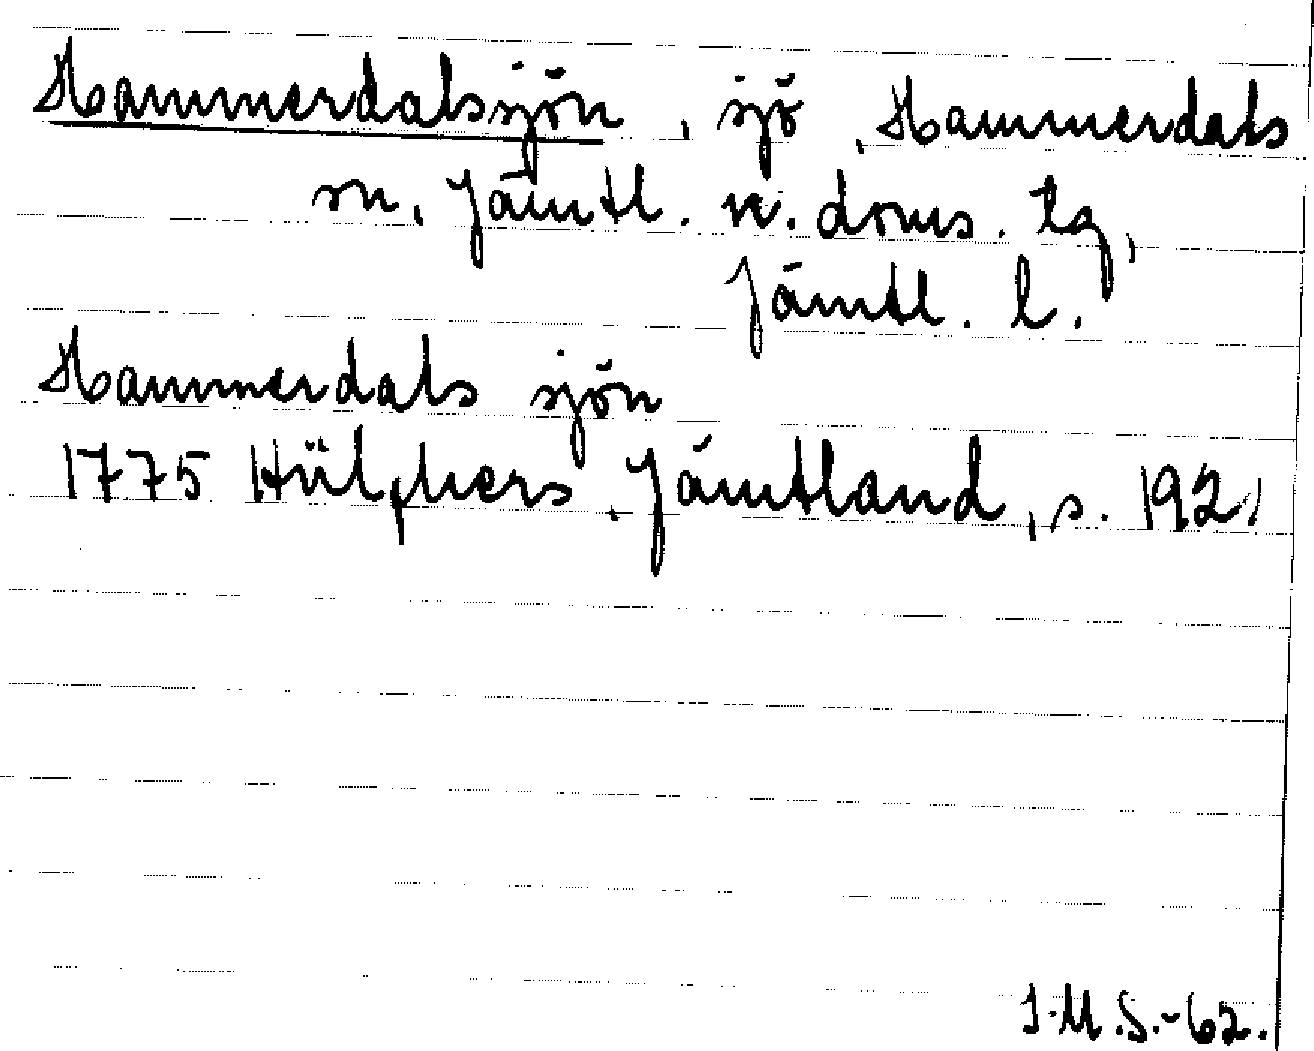 Hammerdalssjön, sjö, Hammerdals
sn, Jämtl. n. doms. tg,
Jämtl. l.
Hammerdals sjön
1775 Hülphers, Jämtland, s. 192,
I.M.S.-62.